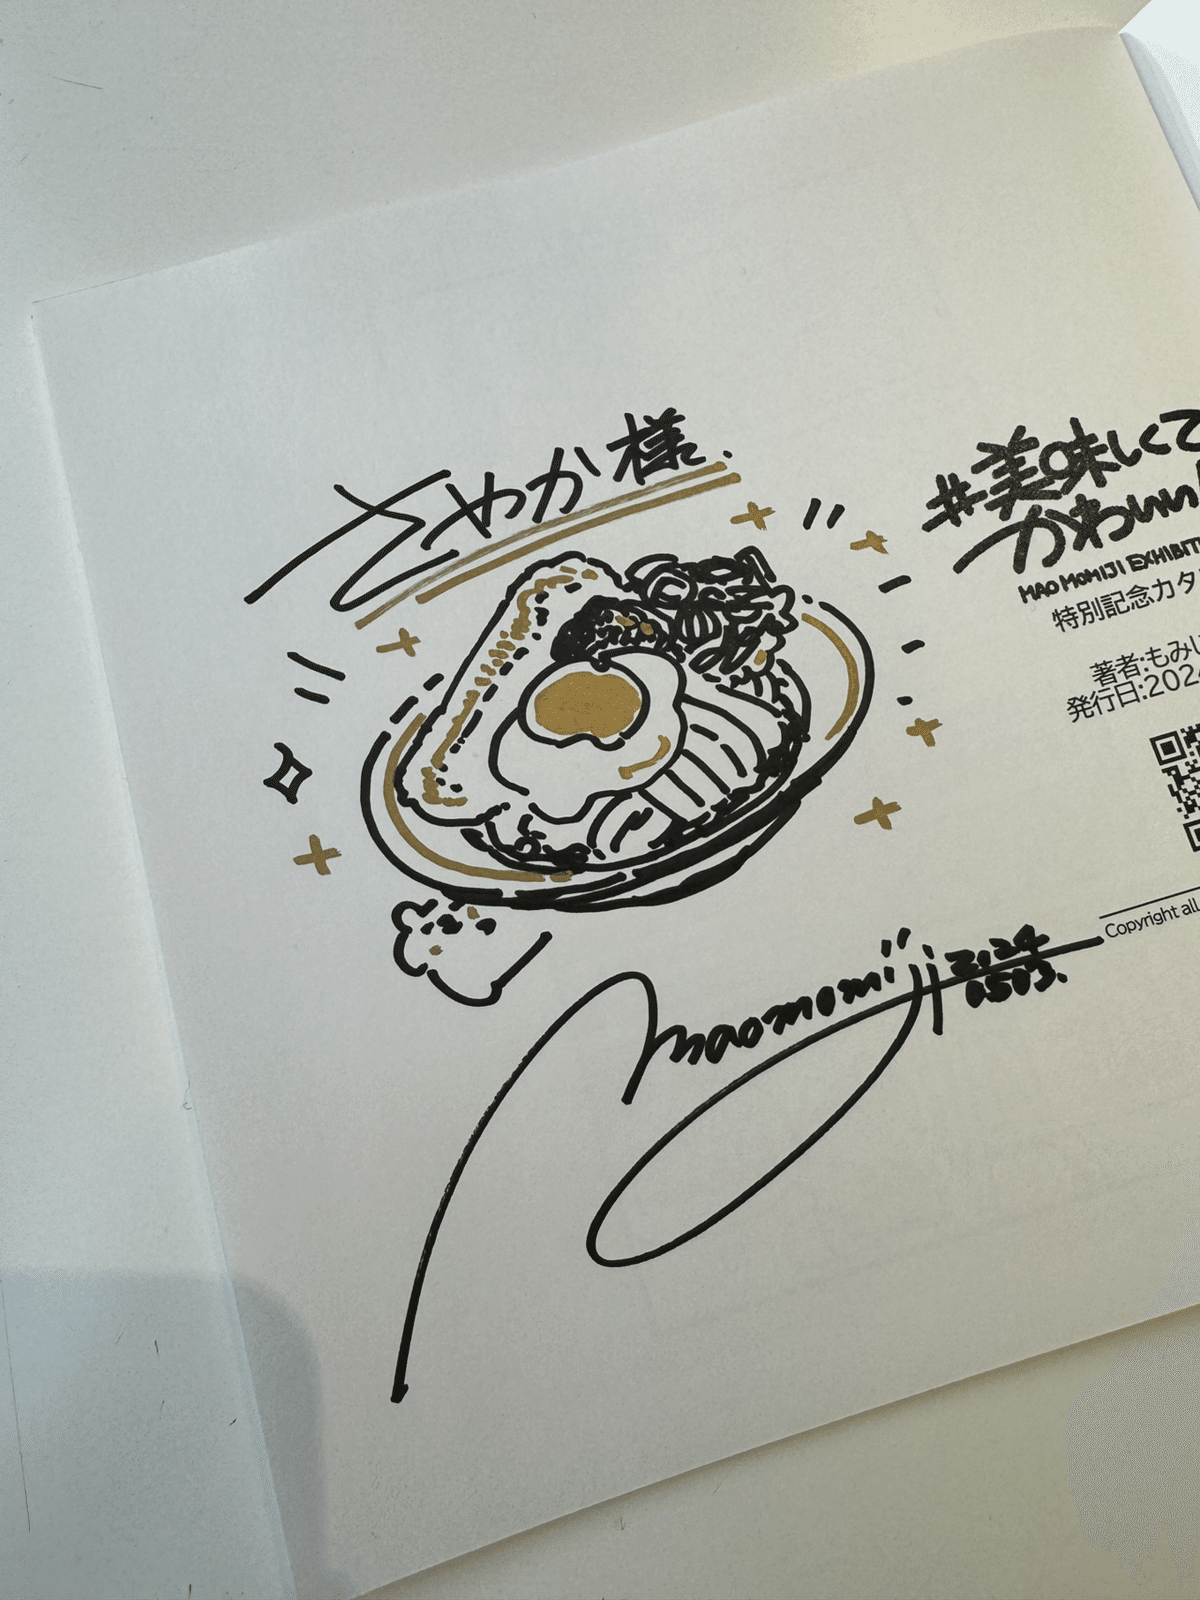 さやか様.
#美味しくて
かわいい
MAO MOMIJI EXHIBIT
特別記念カタ
著者:もみじ
発行日:2024
Copyright all
maomomiji 2024
0503.